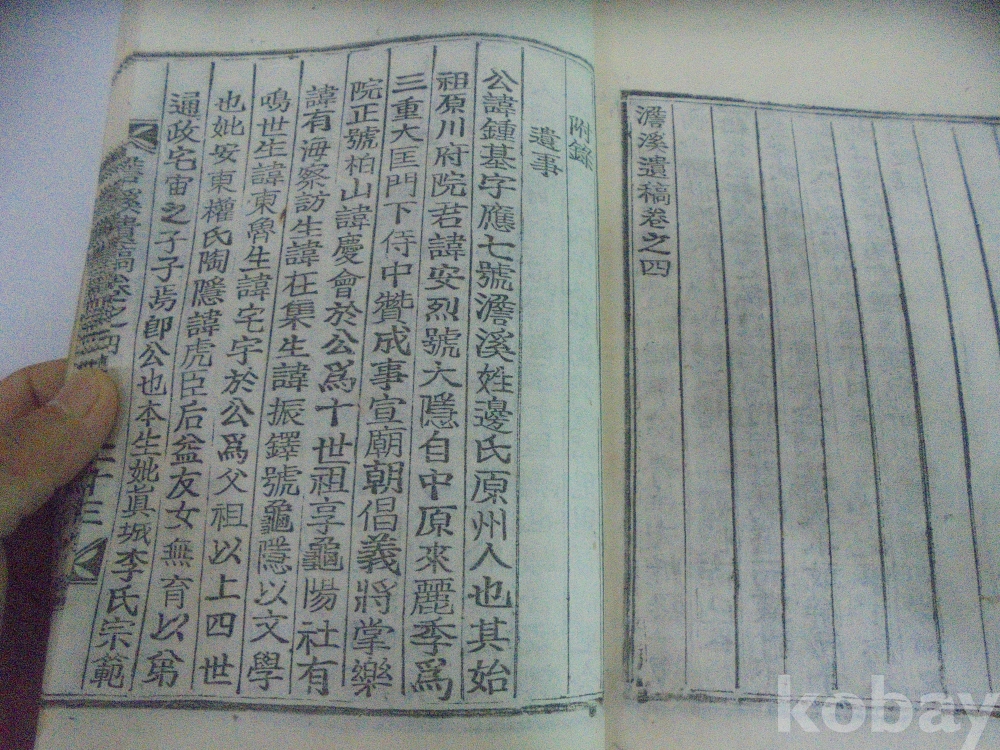 澹溪遺稿卷之四
附錄
遺事
公諱鍾基字應七號澹溪姓邊氏原州人也其始
祖原川府院君諱安烈號大隱自中原來麗季爲
三重大匡門下侍中贊成事宣廟朝倡義將掌樂
院正號柏山諱慶會於公爲十世祖享龜陽社有
諱有海察訪生諱在集生諱振鐸號龜隱以文學
鳴世生諱東魯生諱宅字於公爲父祖以上四世
也妣安東權氏陶隱諱虎臣后益友女無育以弟
通政宅宙之子子焉卽公也本生妣眞城李氏宗範
kobay